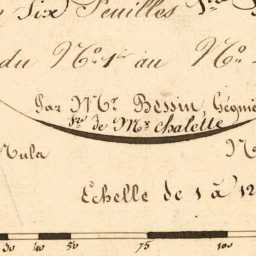 Six Feuilles
du N.o 1er au N.o
Par Mr. Bessin, Géomè
de Mr Chalette
Echelle de 1 à 12
30 40 50 75 100